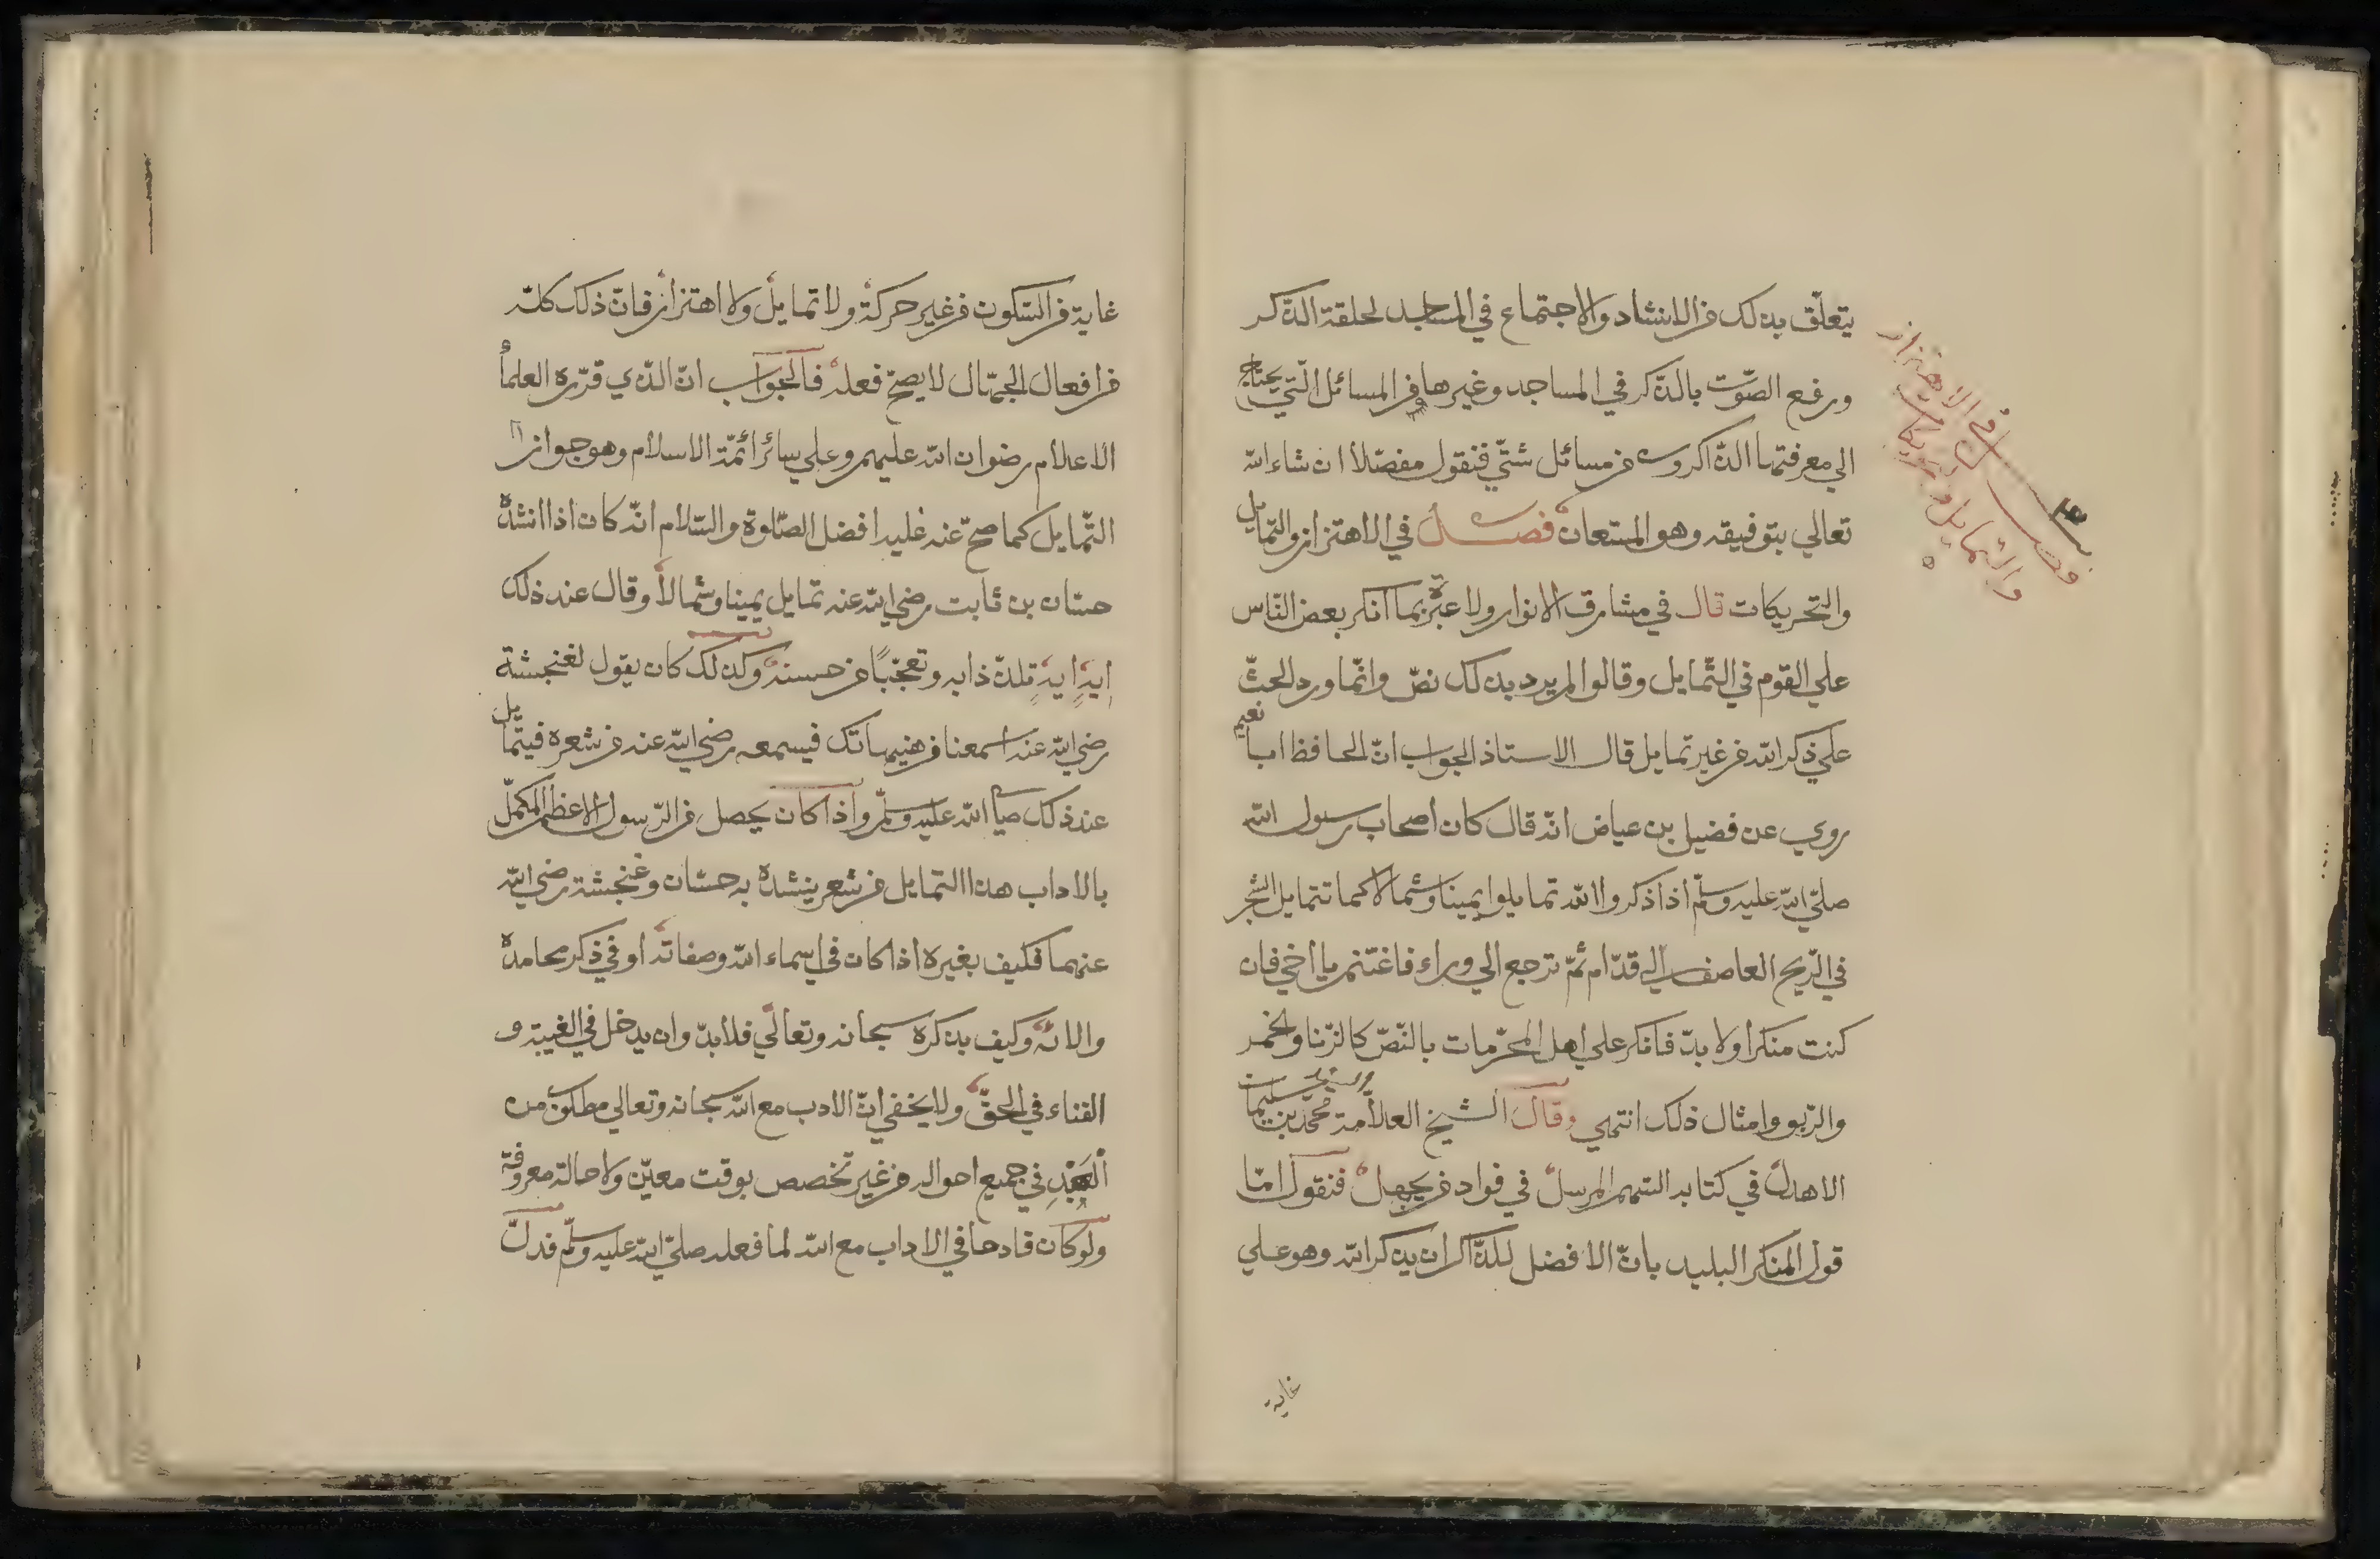 يتعلّق بذلك من الانشاد والاجتماع في المساجد لحلقة الذّكر
ورفع الصّوت بالذّكر في المساجد وغيرها من المسائل الّتي يحتاج
الي معرفتها الذّاكرون من مسائل شتّي فنقول مفصّلا ان شاء الله
تعالي بتوفيقه وهو المستعان فصل في الاهتزاز والتمايل
والتحريكات قال في مشارق الانوار ولا عبرة بما انكر بعض النّاس
علي القوم في التّمايل وقالوا لم يرد بذلك نصّ وانّما ورد الحثّ
علي ذكر الله من غير تمايل قال الاستاذ الجواب انّ الحافظ ابا نعيم
روي عن فضيل بن عياض انّه قال كان اصحاب رسول الله
صلّي الله عليه وسلّم اذا ذكروا الله تمايلوا يمينا وشمالا كما تتمايل الشجر
في الرّيح العاصف الي قدّام ثمّ ترجع الي وراء فاغتنم يا اخي فان
كنت منكرا ولا بدّ فانكر علي اهل المحرّمات بالنّصّ كالزّنا والخمر
والرّبو وامثال ذلك انتهي وقال الشيخ العلاّمة محمّد بن سليمان
الاهدل في كتابه السّهم المرسل في فواد من يجهل فنقول امّا
قول المنكر البليد بانّ الافضل للذّاكر ان يذكر الله وهو علي
غاية
فصل في الاهتزاز
والتمايل وتحريكات
غاية من السّكون من غير حركة ولا تمايل ولا اهتزاز فانّ ذلك كلّه
من افعال الجهّال لا يصحّ فعله فالجواب انّ الذّي قرّره العلمأ
الاعلام رضوان الله عليهم وعلي سائر ائمّة الاسلام وهو جواز
التّمايل كما صحّ عنه عليه افضل الصّلوة والسّلام انّه كان اذا انشده
حسّان بن ثابت رضي الله عنه تمايل يمينا وشمالا وقال عند ذلك
ايهٍ ايهٍ تلذّذا به وتعجّبًا من حسنه وكذلك كان يقول لغنجشة
رضي الله عنه اسمعنا من هنيهاتك فيسمعه رضي الله عنه من شعره فيتمايل
عند ذلك صلي الله عليه وسلّم واذا كان يحصل من الرّسول الاعظم المكمّل
بالاداب هذا التمايل من شعر ينشده به حسّان وغنجشة رضي الله
عنهما فكيف بغيره اذا كان في اسماء الله وصفاته او في ذكر محامده
والائه وكيف بذكره سبحانه وتعالي فلا بدّ وان يدخل في الغيبة و
الفناء في الحقّ ولا يخفي انّ الادب مع الله سبحانه وتعالي مطلوب من
الْعَبْدِ في جميع احواله من غير تخصص بوقت معيّن ولا حالة معروفة
ولو كان قادحا في الاداب مع الله لما فعله صلّي الله عليه وسلّم فدلّ